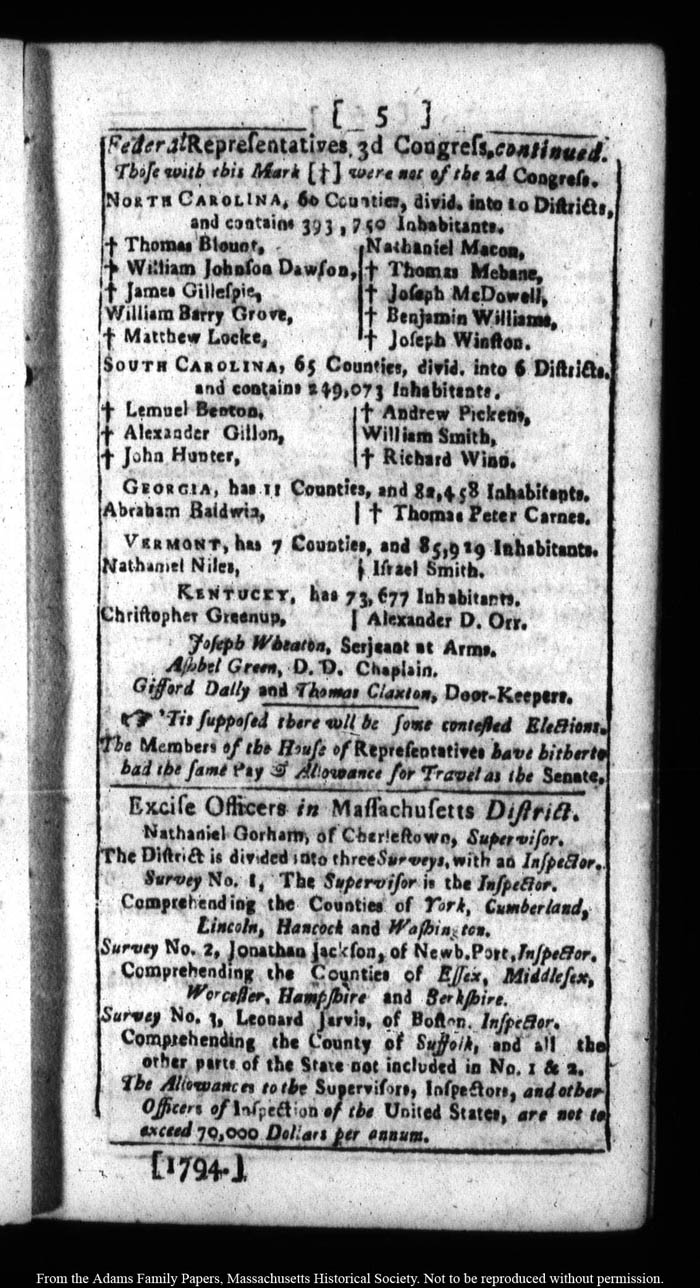 [ 5 ]
Federal Repreſentatives, 3d Congreſs, continued.
Thoſe with this Mark [†] were not of the 2d Congreſs.
NORTH CAROLINA, 60 Counties, divid. into 10 Diſtricts,
and contains 393,750 Inhabitants.
† Thomas Blount, | Nathaniel Macon,
† William Johnſon Dawſon, | † Thomas Mebane,
† James Gilleſpie, | † Joſeph McDowell,
William Barry Grove, | † Benjamin Williams,
† Matthew Locke, | † Joſeph Winſton.
SOUTH CAROLINA, 65 Counties, divid. into 6 Diſtricts.
and contains 249,073 Inhabitants.
† Lemuel Benton, | † Andrew Pickens,
† Alexander Gillon, | William Smith,
† John Hunter, | † Richard Winn.
GEORGIA, has 11 Counties, and 82,458 Inhabitants.
Abraham Baldwin, | † Thomas Peter Carnes.
VERMONT, has 7 Counties, and 85,929 Inhabitants.
Nathaniel Niles, | Iſrael Smith.
KENTUCKY, has 73,677 Inhabitants.
Chriſtopher Greenup, | Alexander D. Orr.
Joſeph Wheaton, Serjeant at Arms.
Aſhbel Green, D. D. Chaplain.
Gifford Dally and Thomas Claxton, Door-Keepers.
☞ 'Tis ſuppoſed there wll be ſome conteſted Elections.
The Members of the Houſe of Repreſentatives have hitherto
had the ſame Pay & Allowance for Travel as the Senate.
Exciſe Officers in Maſſachuſetts Diſtrict.
Nathaniel Gorham, of Charleſtown, Superviſor.
The Diſtrict is divided into three Surveys, with an Inſpector.
Survey No. 1, The Superviſor is the Inſpector.
Comprehending the Counties of York, Cumberland,
Lincoln, Hancock and Waſhington.
Survey No. 2, Jonathan Jackſon, of Newb. Port, Inſpector.
Comprehending the Counties of Eſſex, Middleſex,
Worceſter, Hampſhire and Berkſhire.
Survey No. 3, Leonard Jarvis, of Boſton. Inſpector.
Comprehending the County of Suffolk, and all the
other parts of the State not included in No. 1 & 2.
The Allowances to the Superviſors, Inſpectors, and other
Officers of Inſpection of the United States, are not to
exceed 70,000 Dollars per annum.
[1794.]
From the Adams Family Papers, Massachusetts Historical Society. Not to be reproduced without permission.